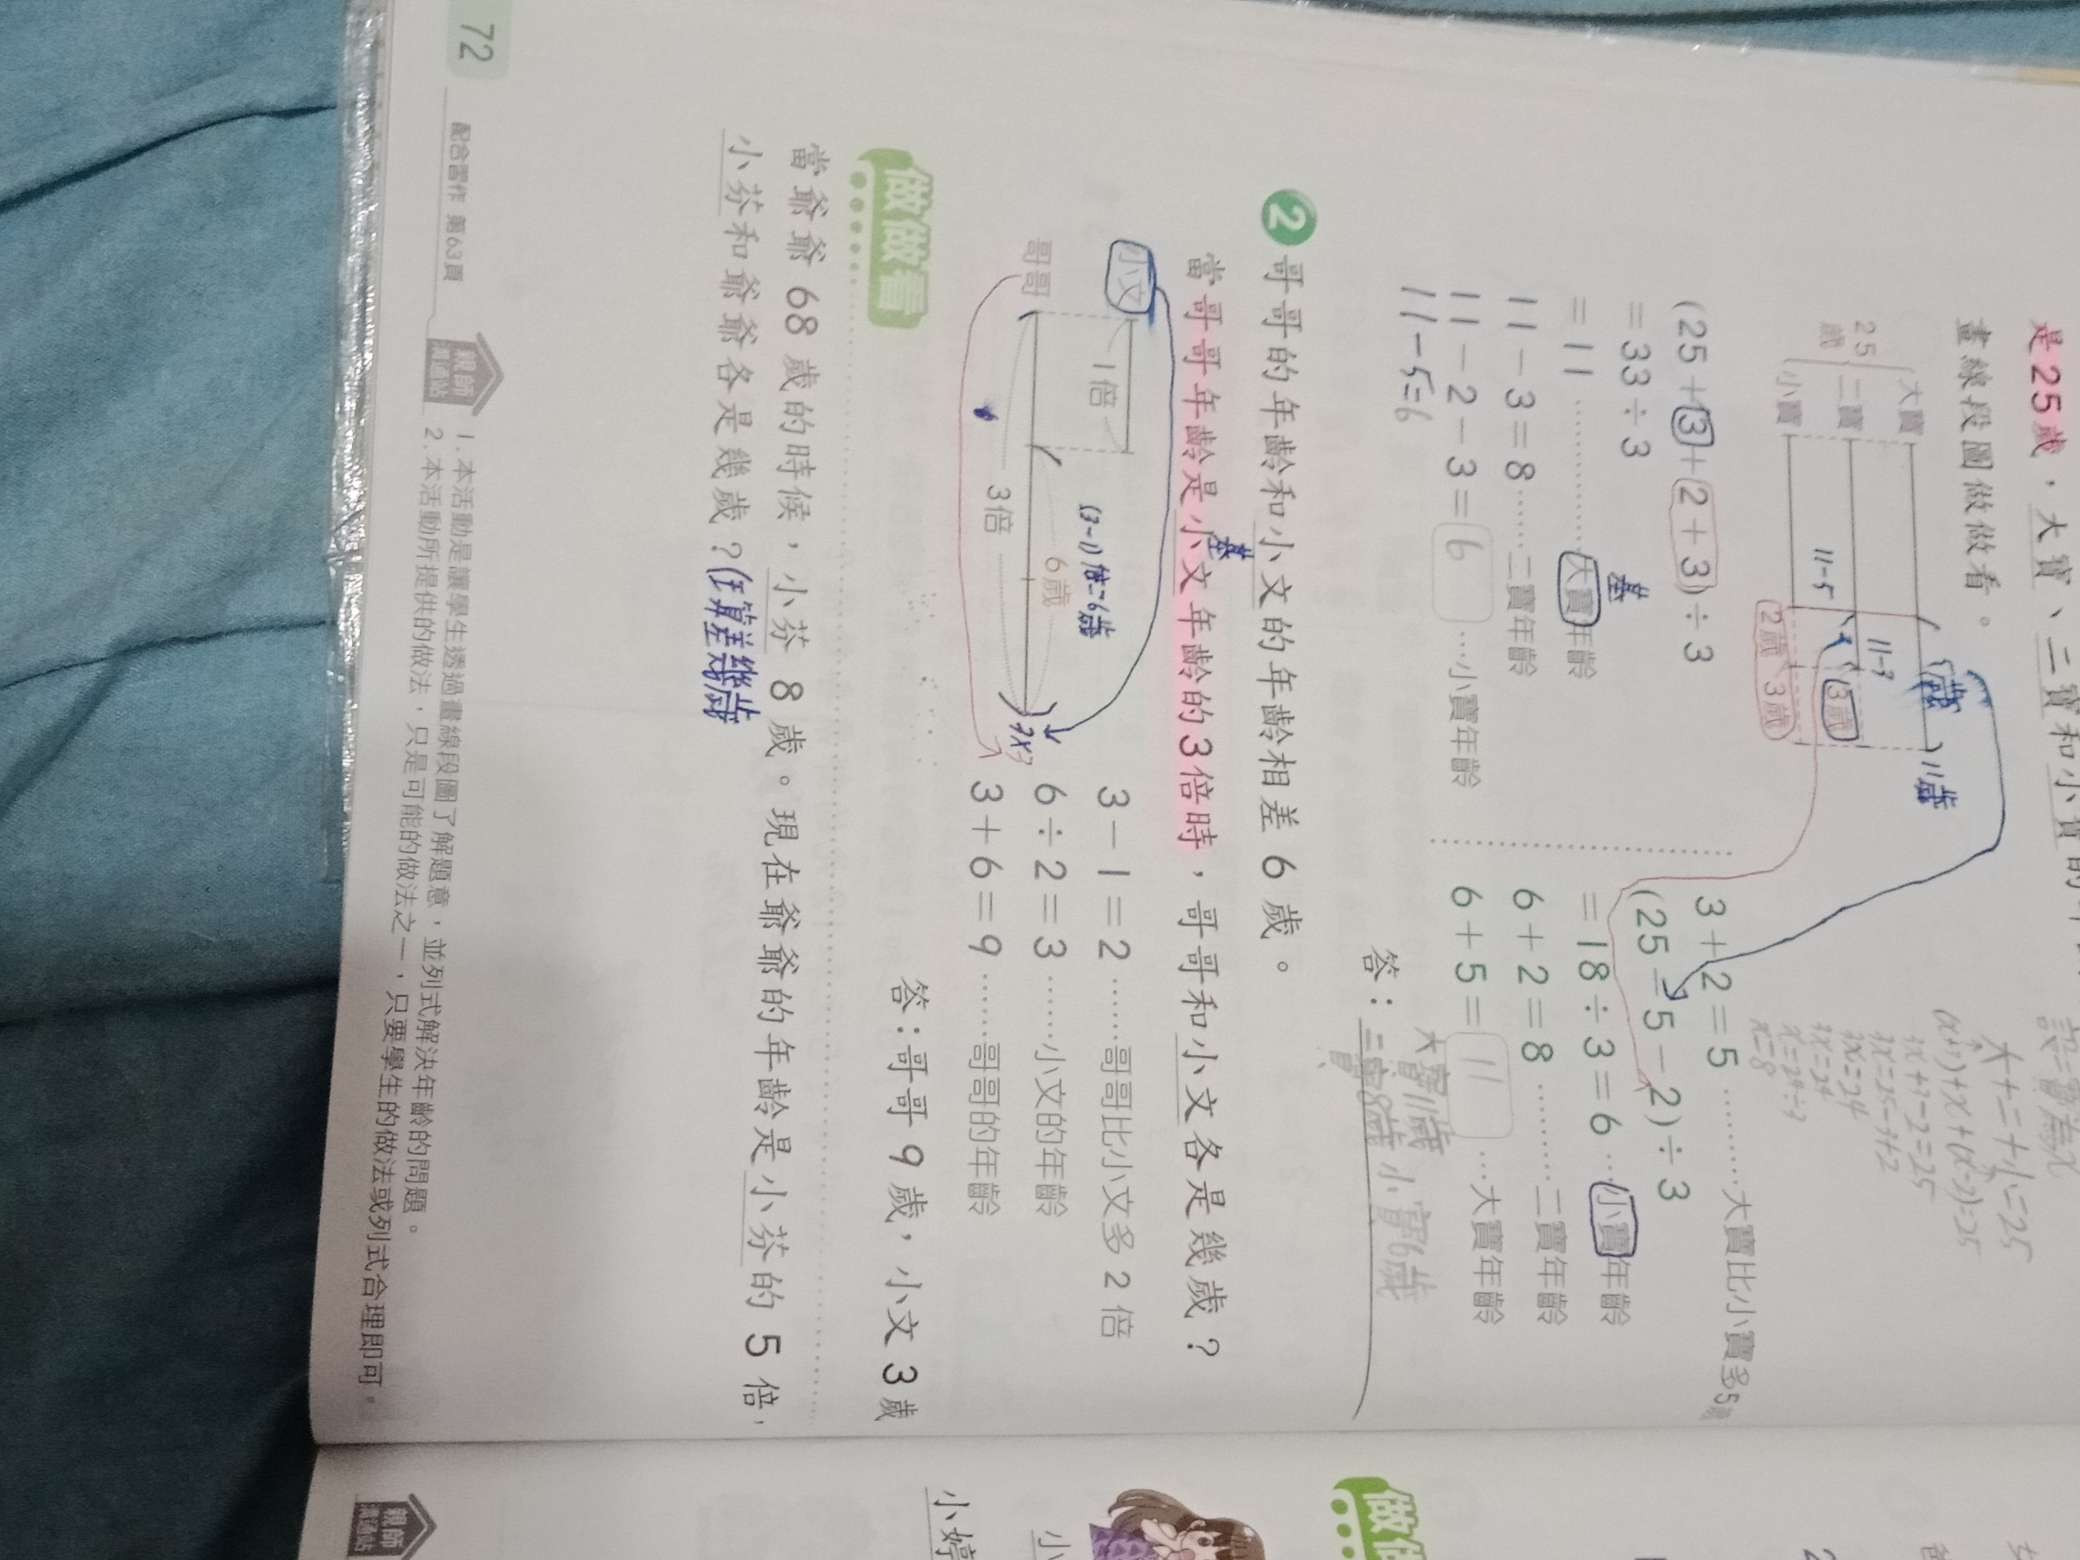 是25歲，大寶、二寶和小寶的
畫線段圖做做看。
大寶
二寶
小寶
25歲
11歲
11-3
3歲
11-5
2歲 3歲
大+二+小=25
3x=24
x=8
(25+3+(2+3))÷3
=33÷3
=11……大寶年齡
基
11-3=8……二寶年齡
11-2-3=6…小寶年齡
11-5=6
3+2=5……大寶比小寶多5歲
(25-5-2)÷3
=18÷3=6…小寶年齡
6+2=8……二寶年齡
6+5=11…大寶年齡
答：大寶11歲
二寶8歲 小寶6歲
2 哥哥的年齡和小文的年齡相差6歲。
當哥哥年齡是小文年齡的3倍時，哥哥和小文各是幾歲？
基
小文
1倍
(3-1)倍=6歲
6歲
哥哥
3倍
3×3
3-1=2……哥哥比小文多2倍
6÷2=3……小文的年齡
3+6=9……哥哥的年齡
答：哥哥9歲，小文3歲
做做看
當爺爺68歲的時候，小芬8歲。現在爺爺的年齡是小芬的5倍，
小芬和爺爺各是幾歲？(任算差幾歲
親師
1.本活動是讓學生透過畫線段圖了解題意，並列式解決年齡的問題。
2.本活動所提供的做法，只是可能的做法之一，只要學生的做法或列式合理即可。
72
配合習作 第63頁
做做
小
小婷
親師